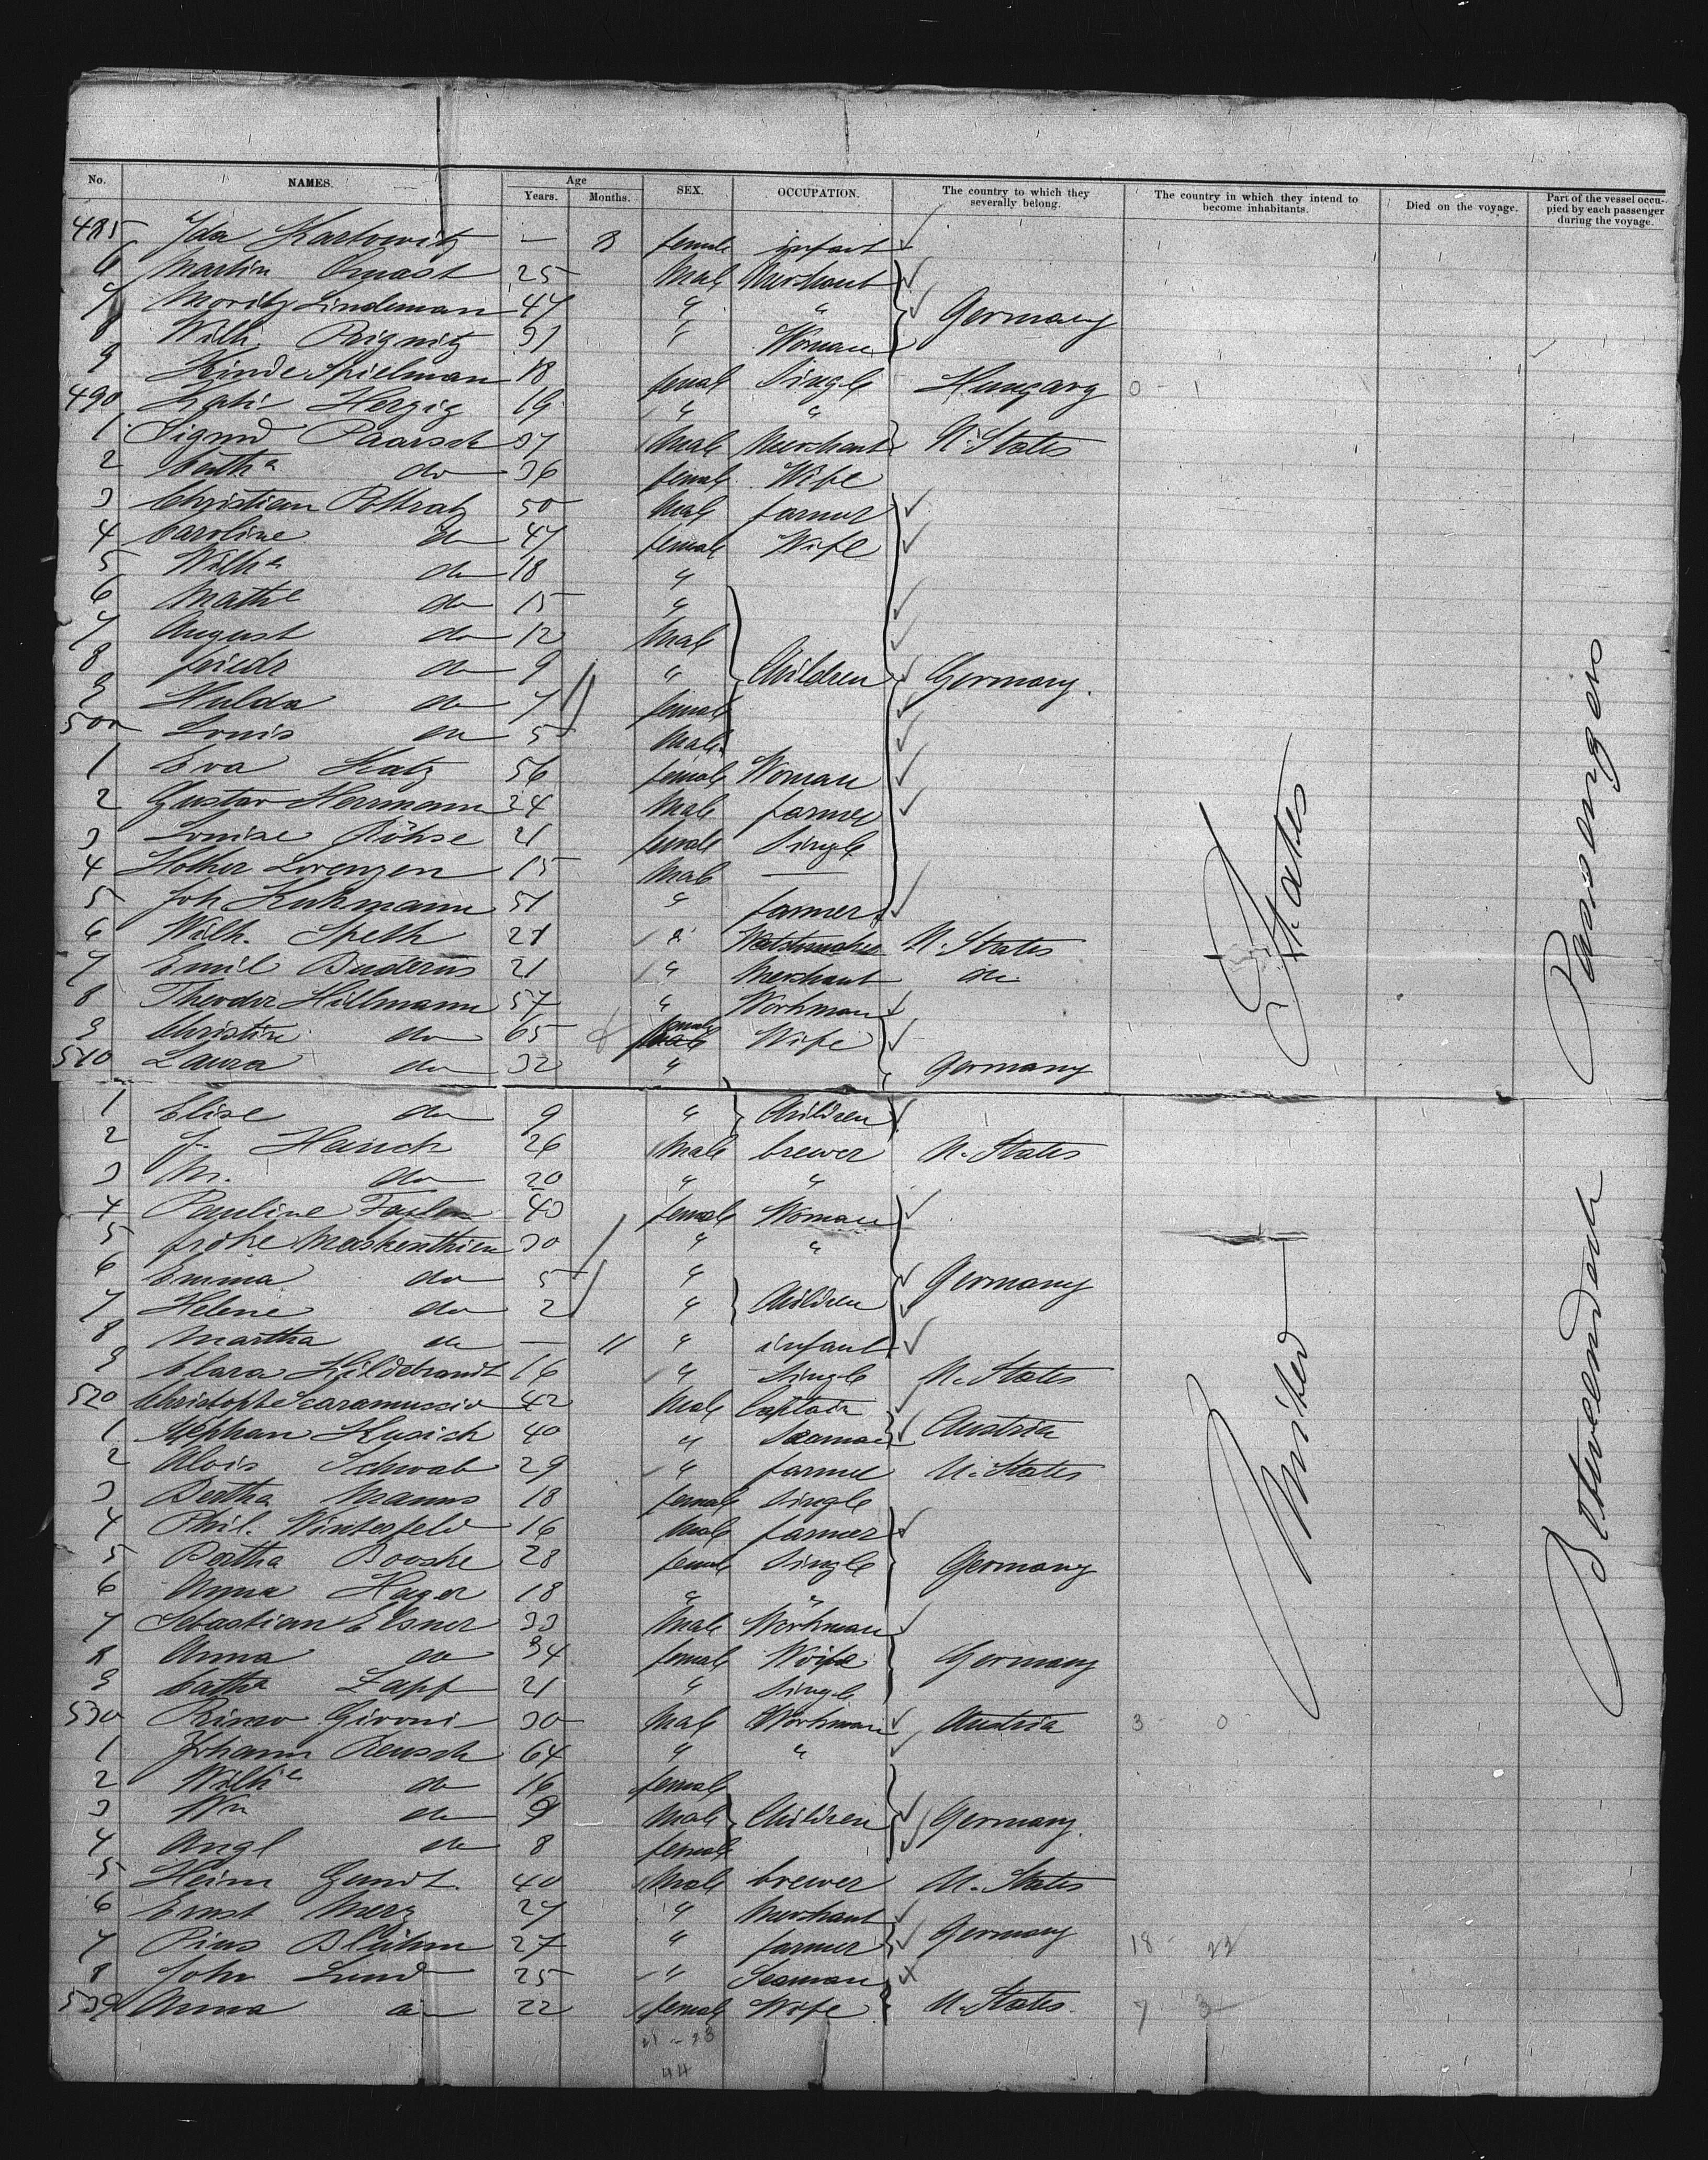 No. NAMES. Age Years. Months. SEX. OCCUPATION. The country to which they severally belong. The country in which they intend to become inhabitants. Died on the voyage. Part of the vessel occupied by each passenger during the voyage.
485 Ida Kartowitz — 8 female infant
6 Martin Quast 25 Male Merchant
7 Moritz Lindeman 47 " " Germany
8 Wilh. Prignitz 31 " Woman
9 Hinde Spielman 18 female Single Hungary 0 - 1
490 Kati Herzig 19 " "
1 Sigmd Paarsch 37 Male Merchant U. States
2 Cathe do 36 female Wife
3 Christian Pollratz 50 Male farmer
4 Caroline do 47 female Wife
5 Wilhe do 18 "
6 Mathe do 15 "
7 August do 12 Male
8 friedr do 9 " Children Germany.
9 Hulda do 7 female
500 Louis do 5 Male
1 Eva Katz 56 female Woman
2 Gustav Herrmann 24 Male farmer
3 Louise Röhse 21 female Single
4 Hother Lorenzen 15 Male —
5 Joh Kuhmann 51 " farmer
6 Wilh. Speth 27 " Watchmaker U. States
7 Emil Buderus 21 " Merchant do
8 Theodor Hillmann 57 " Workman
9 Christine do 65 female Wife
510 Laura do 32 " Germany
1 Elise do 9 " Children
2 J. Hauck 26 Male brewer U. States
3 M. do 20 " "
4 Pauline 43 female Woman
5 30 " "
6 Emma do 5 " Germany
7 Helene do 2 " Children
8 Martha do — 11 " infant
9 Clara Hildebrandt 16 " Single U. States
520 Christophe Scaramuccio 42 Male Captain
1 Stephan Kusich 40 " Seaman Austria
2 Alois Schwab 29 " farmer U. States
3 Bertha Manns 18 female Single
4 Phil. Winterfeld 16 Male farmer
5 Bertha Booske 28 female Single Germany
6 Anna Hager 18 " "
7 Sebastian Elsner 33 Male Workman
8 Anna do 34 female Wife Germany
9 Cathe Zapf 21 " Single
530 Rimo Gironi 30 Male Workman Austria 3 - 0
1 Johann Reusch 64 " "
2 Wilhe do 16 female
3 Wm do 9 Male Children Germany.
4 Angl do 8 female
5 Heinr Gundt. 40 Male brewer U. States
6 Ernst Merz 27 " Merchant
7 Pius Blühm 27 " farmer Germany 18 - 22
8 John Lund 25 " Seaman
539 Anna do 22 female Wife U. States. 7 3
21 - 23
44
United States
Betweendeck Passengers